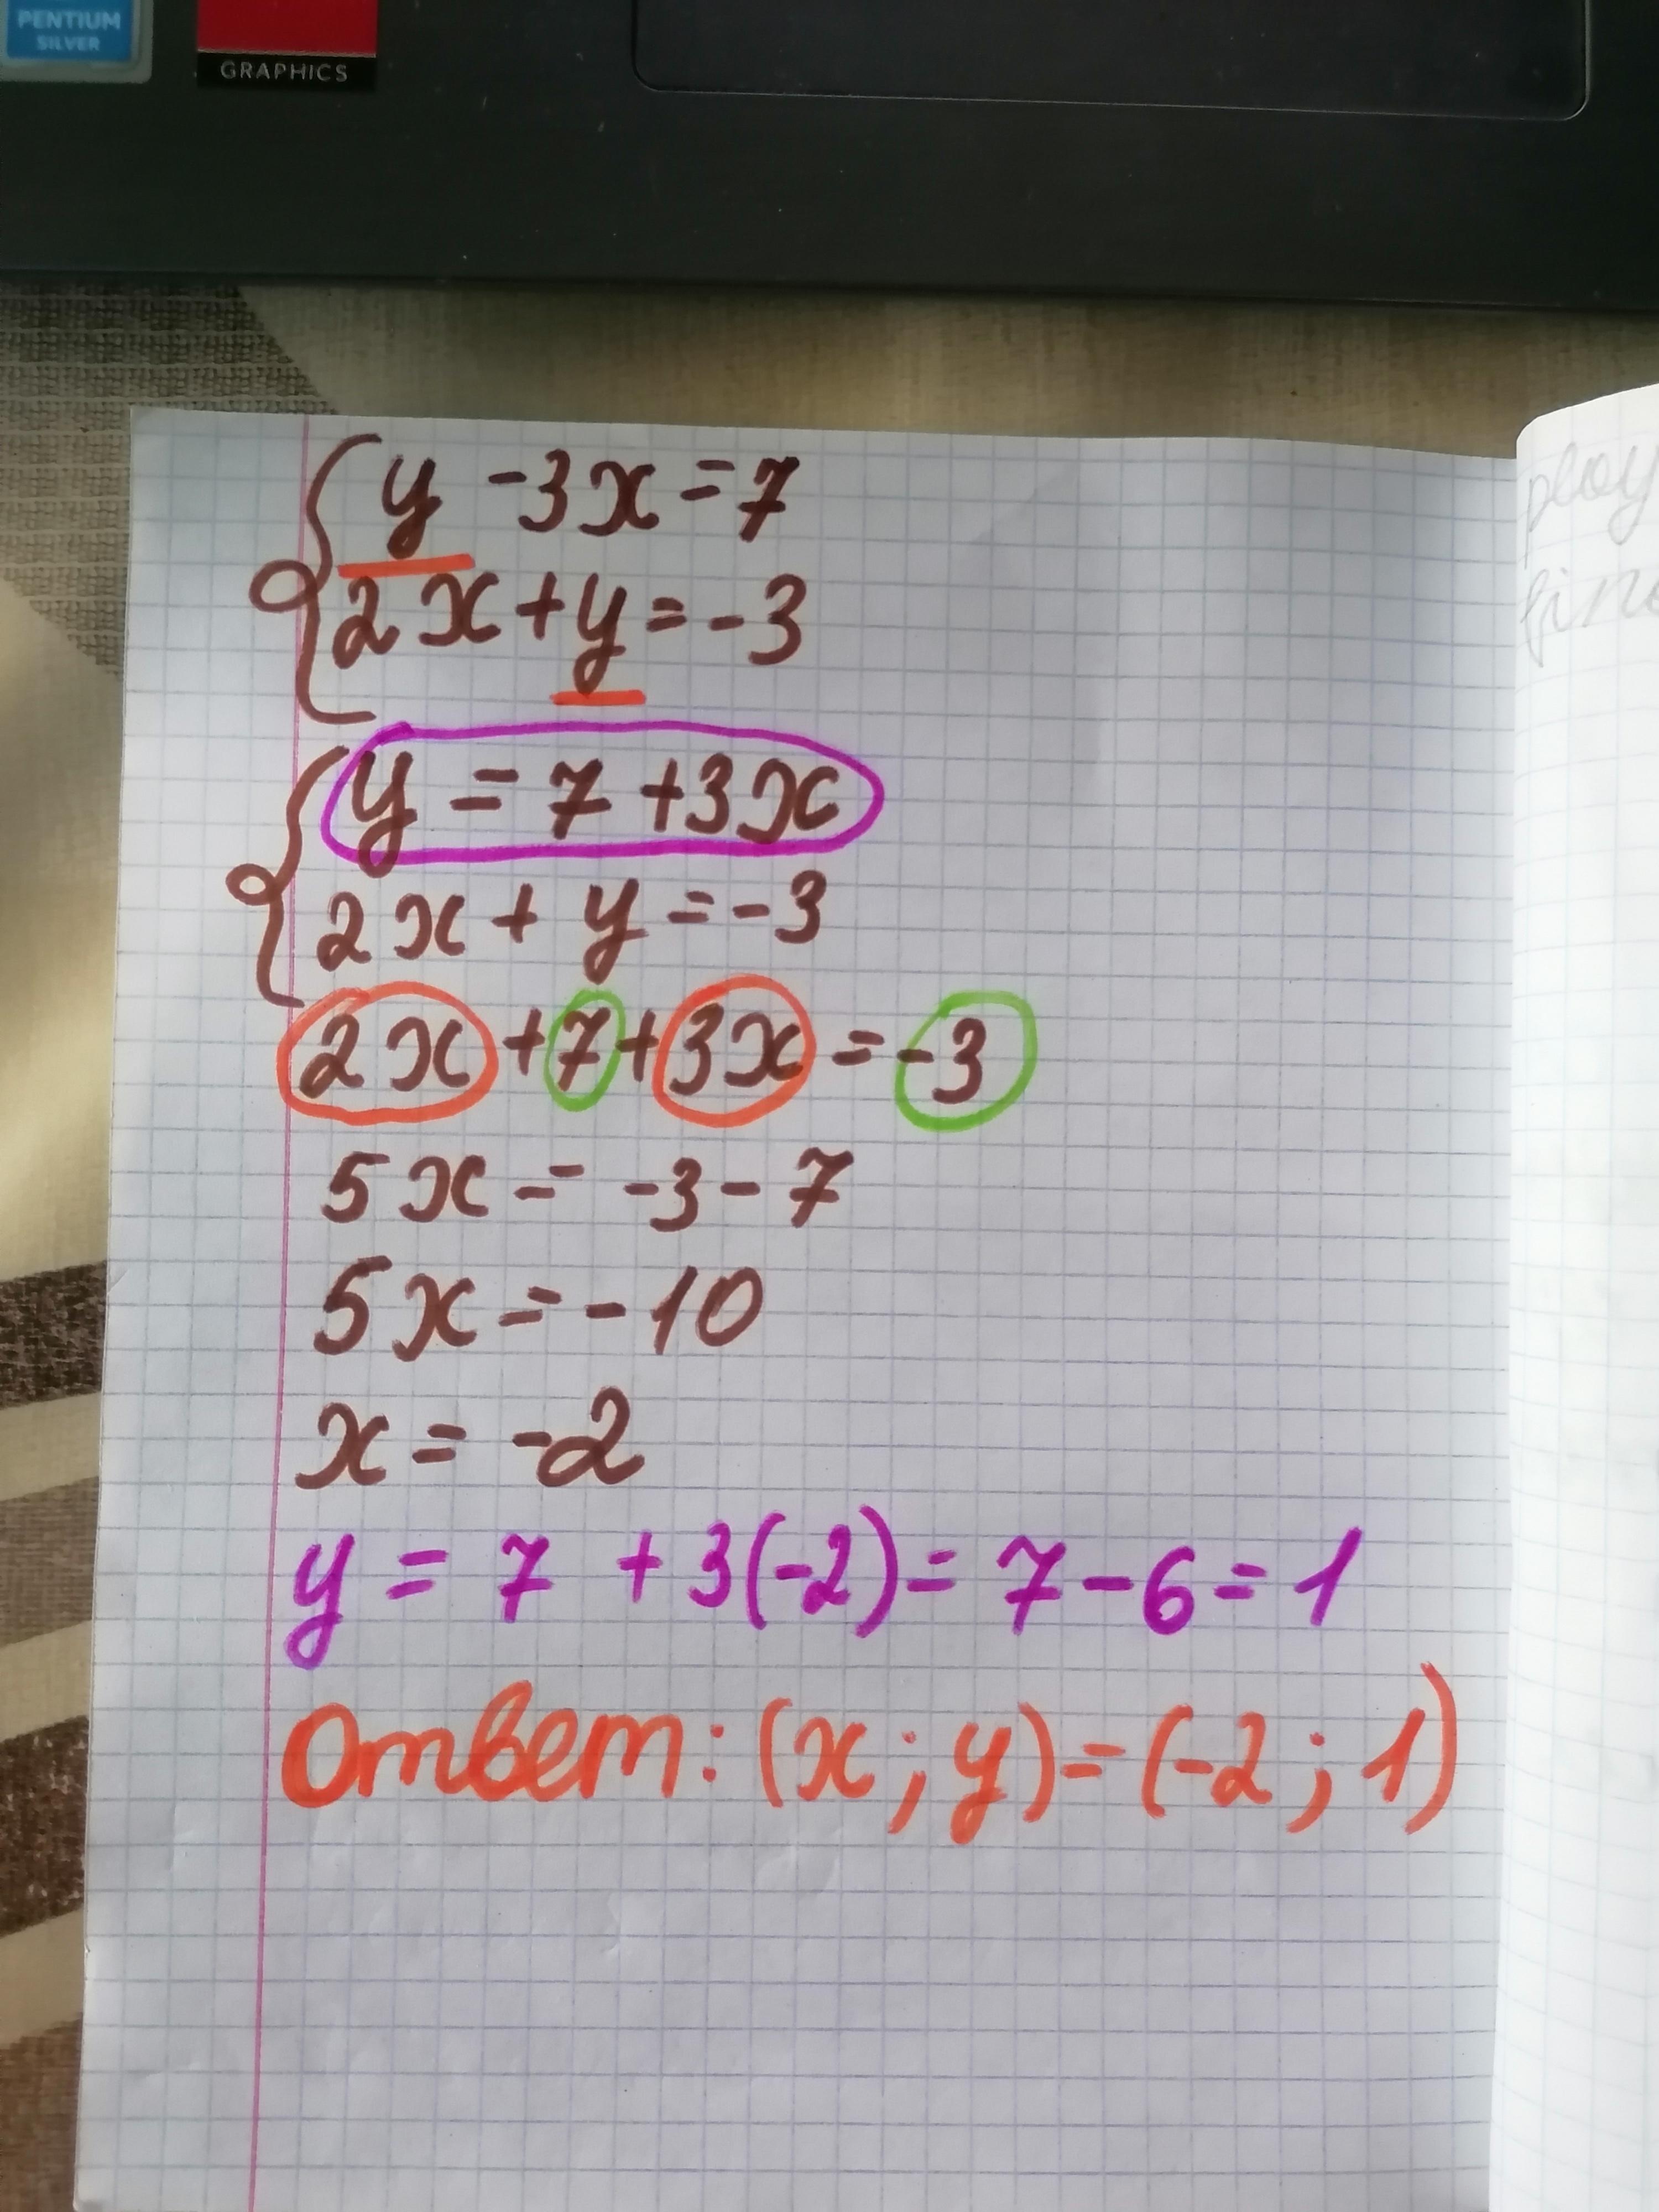 PENTIUM
SILVER
GRAPHICS
y - 3x = 7
2x + y = -3
y = 7 + 3x
2x + y = -3
2x + 7 + 3x = -3
5x = -3 - 7
5x = -10
x = -2
y = 7 + 3(-2) = 7 - 6 = 1
Ответ: (x; y) = (-2; 1)
play